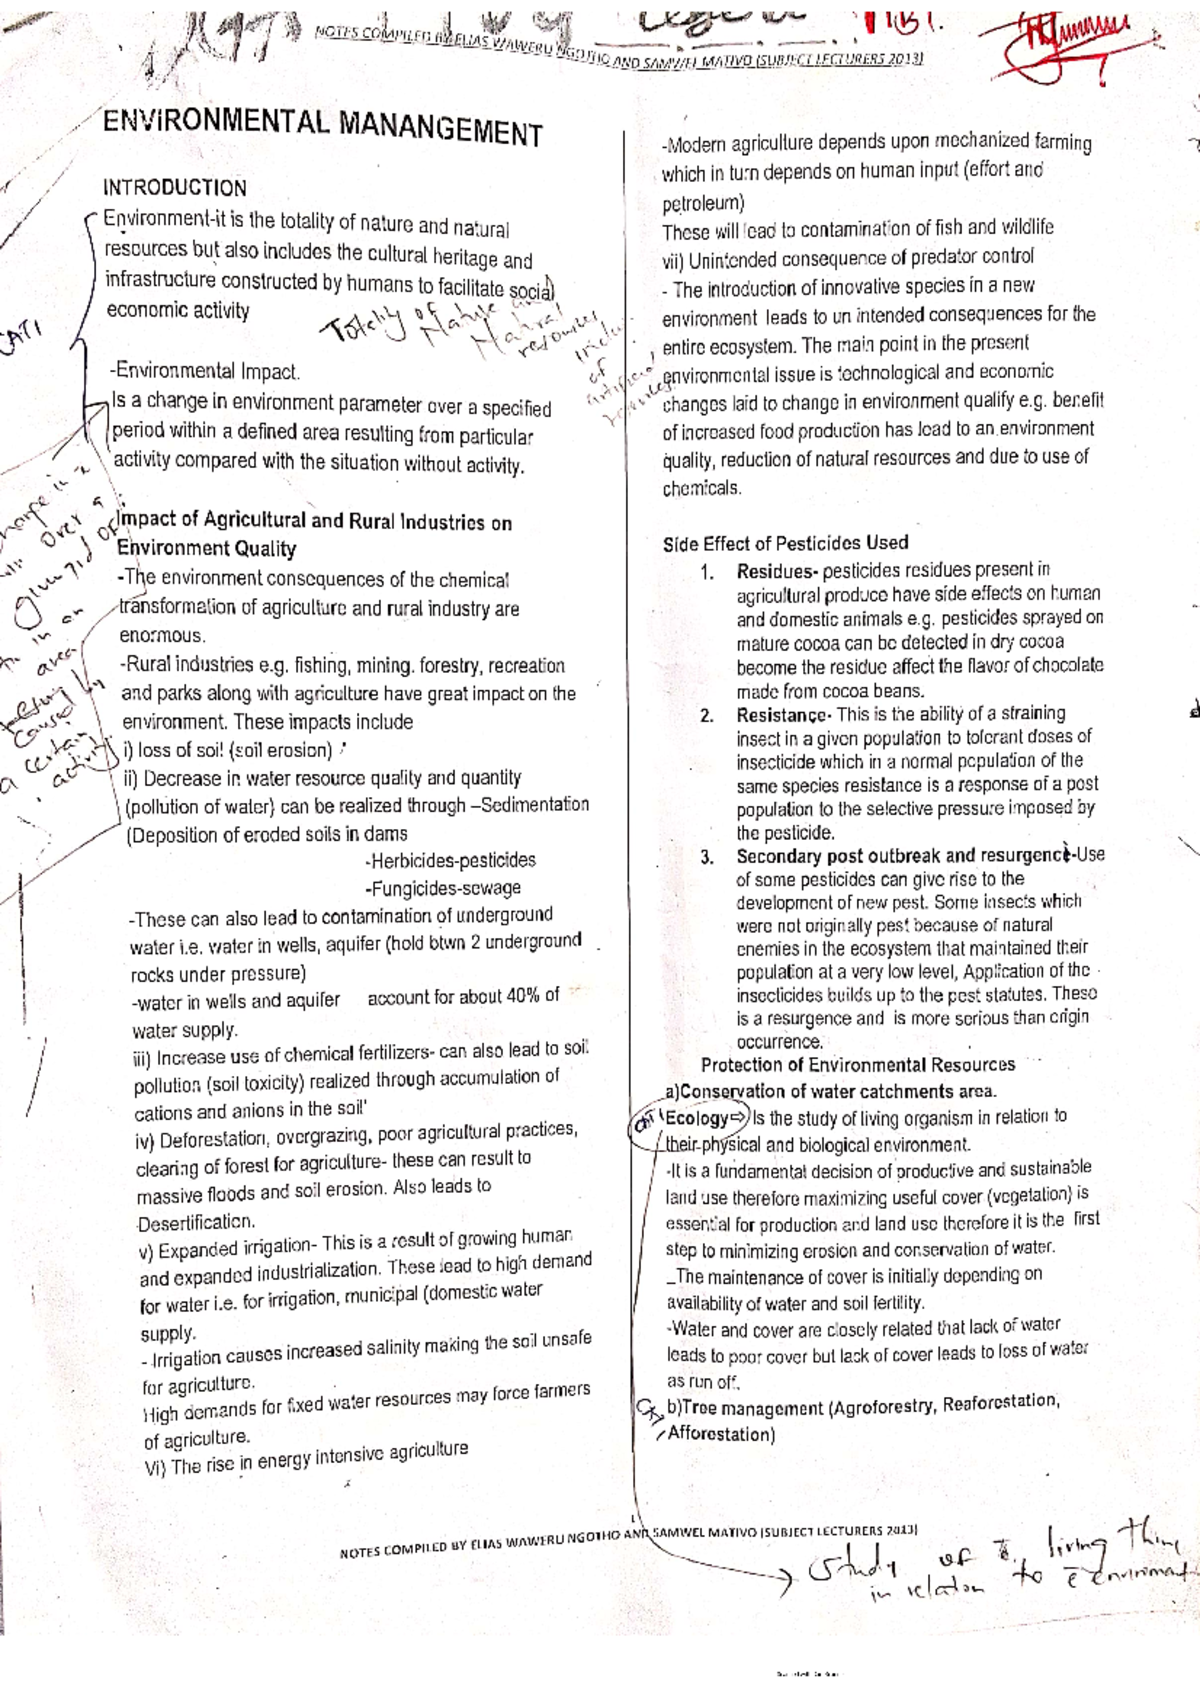 NOTES COMPILED BY ELIAS WAWERU NGOTHO AND SAMWEL MATIVO (SUBJECT LECTURERS 2013)
ENVIRONMENTAL MANANGEMENT
INTRODUCTION
Environment-it is the totality of nature and natural
resources but also includes the cultural heritage and
infrastructure constructed by humans to facilitate social
economic activity
Totality of Nature and
Natural
resources
of
artificial
CATI
-Environmental Impact.
Is a change in environment parameter over a specified
period within a defined area resulting from particular
activity compared with the situation without activity.
change in
over a
given
of
in an
area
caused by
a certain
activity
Impact of Agricultural and Rural Industries on
Environment Quality
-The environment consequences of the chemical
transformation of agriculture and rural industry are
enormous.
-Rural industries e.g. fishing, mining. forestry, recreation
and parks along with agriculture have great impact on the
environment. These impacts include
i) loss of soil (soil erosion)
ii) Decrease in water resource quality and quantity
(pollution of water) can be realized through –Sedimentation
(Deposition of eroded soils in dams
-Herbicides-pesticides
-Fungicides-sewage
-These can also lead to contamination of underground
water i.e. water in wells, aquifer (hold btwn 2 underground
rocks under pressure)
-water in wells and aquifer account for about 40% of
water supply.
iii) Increase use of chemical fertilizers- can also lead to soil
pollution (soil toxicity) realized through accumulation of
cations and anions in the soil'
iv) Deforestation, overgrazing, poor agricultural practices,
clearing of forest for agriculture- these can result to
massive floods and soil erosion. Also leads to
Desertification.
v) Expanded irrigation- This is a result of growing human
and expanded industrialization. These lead to high demand
for water i.e. for irrigation, municipal (domestic water
supply.
- Irrigation causes increased salinity making the soil unsafe
for agriculture.
High demands for fixed water resources may force farmers
of agriculture.
Vi) The rise in energy intensive agriculture
-Modern agriculture depends upon mechanized farming
which in turn depends on human input (effort and
petroleum)
These will lead to contamination of fish and wildlife
vii) Unintended consequence of predator control
- The introduction of innovative species in a new
environment leads to un intended consequences for the
entire ecosystem. The main point in the present
environmental issue is technological and economic
changes laid to change in environment qualify e.g. benefit
of increased food production has lead to an environment
quality, reduction of natural resources and due to use of
chemicals.
Side Effect of Pesticides Used
1. Residues- pesticides residues present in
agricultural produce have side effects on human
and domestic animals e.g. pesticides sprayed on
mature cocoa can be detected in dry cocoa
become the residue affect the flavor of chocolate
made from cocoa beans.
2. Resistance- This is the ability of a straining
insect in a given population to tolerant doses of
insecticide which in a normal population of the
same species resistance is a response of a post
population to the selective pressure imposed by
the pesticide.
3. Secondary post outbreak and resurgence-Use
of some pesticides can give rise to the
development of new pest. Some insects which
were not originally pest because of natural
enemies in the ecosystem that maintained their
population at a very low level, Application of the
insecticides builds up to the pest statutes. These
is a resurgence and is more serious than origin
occurrence.
Protection of Environmental Resources
a)Conservation of water catchments area.
CAT1 Ecology⇒ Is the study of living organism in relation to
their-physical and biological environment.
-It is a fundamental decision of productive and sustainable
land use therefore maximizing useful cover (vegetation) is
essential for production and land use therefore it is the first
step to minimizing erosion and conservation of water.
_The maintenance of cover is initially depending on
availability of water and soil fertility.
-Water and cover are closely related that lack of water
leads to poor cover but lack of cover leads to loss of water
as run off.
b)Tree management (Agroforestry, Reaforestation,
Afforestation)
NOTES COMPILED BY ELIAS WAWERU NGOTHO AND SAMWEL MATIVO (SUBJECT LECTURERS 2013)
Study of living thing
in relation to environment